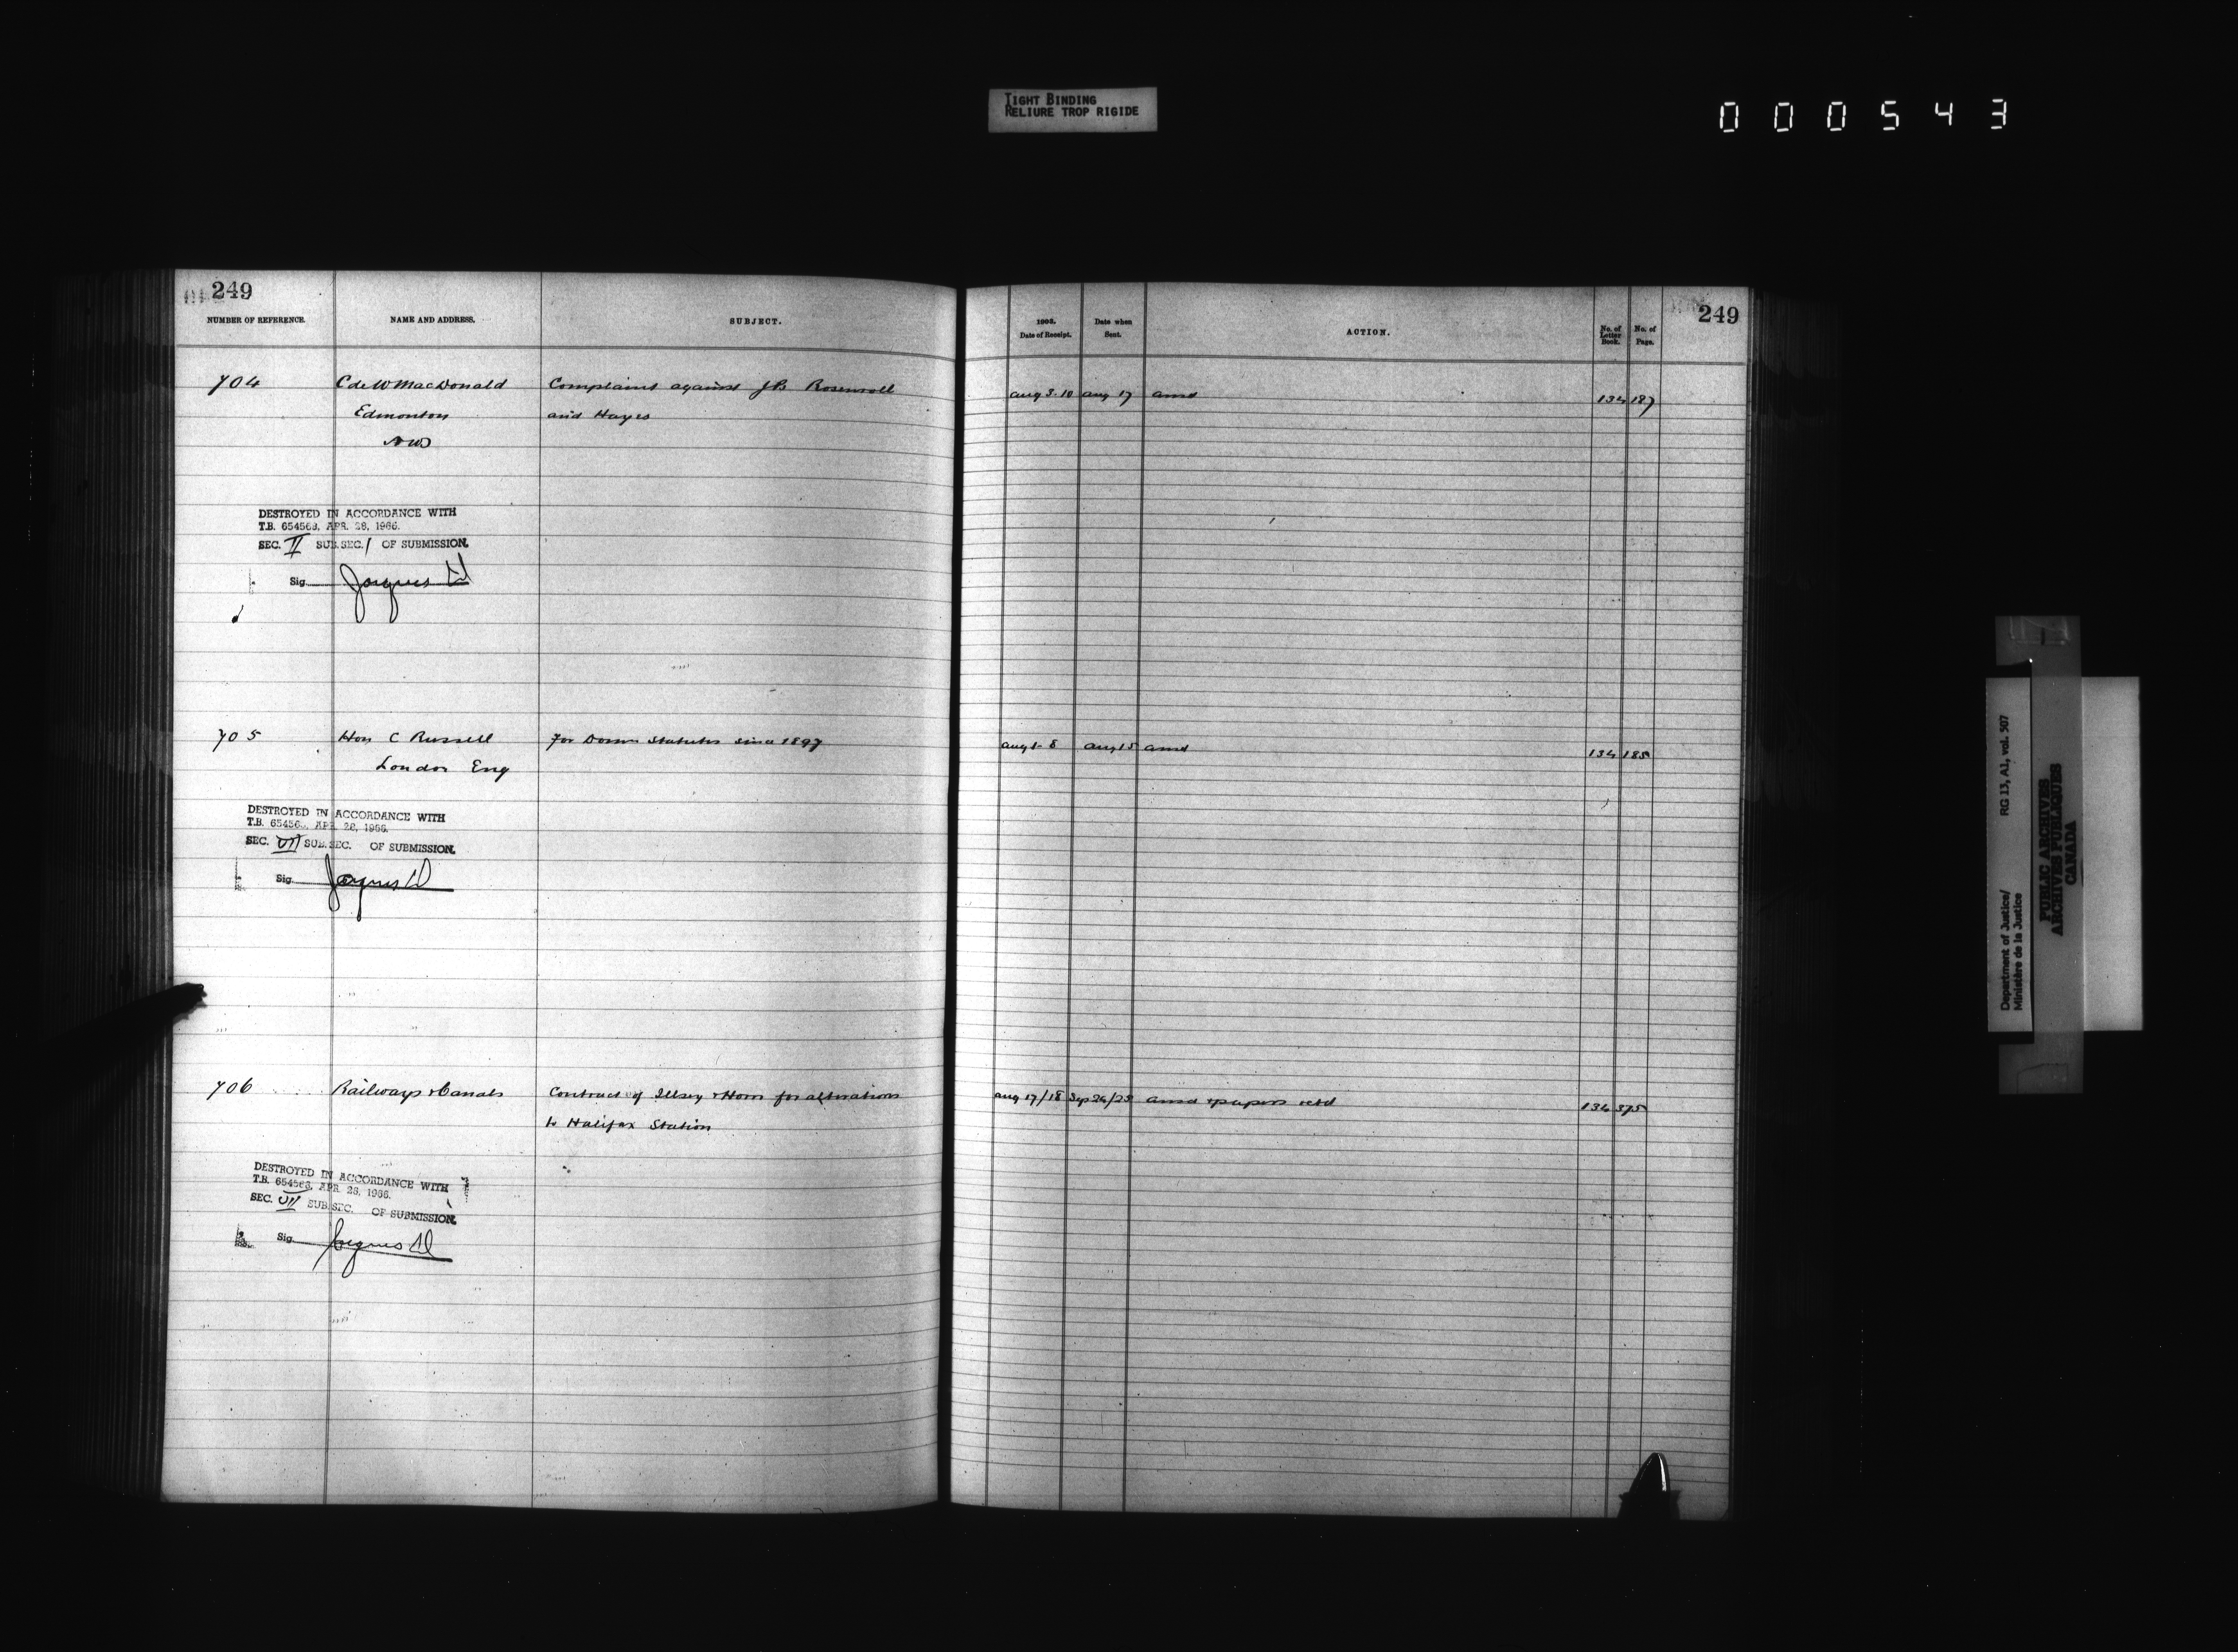 TIGHT BINDING
RELIURE TROP RIGIDE
000543
249
NUMBER OF REFERENCE. NAME AND ADDRESS. SUBJECT.
704 C de W MacDonald Complaint against J B Rosenroll
Edmonton and Hayes
NWT
DESTROYED IN ACCORDANCE WITH
T.B. 654563, APR. 28, 1966.
SEC. II SUB. SEC. 1 OF SUBMISSION.
Sig. Jacques
705 Hon C Russell For Domn Statutes since 1897
London Eng
DESTROYED IN ACCORDANCE WITH
T.B. 65456 APR. 28, 1966.
SEC. VII SUB. SEC. OF SUBMISSION.
Sig. Jacques
706 Railways & Canals Contract of Illsey & Horn for alterations
to Halifax Station
DESTROYED IN ACCORDANCE WITH
T.B. 654563, APR. 28, 1966.
SEC. VII SUB. SEC. OF SUBMISSION.
Sig. Jacques
249
1903. Date of Receipt. Date when Sent. ACTION. No. of Letter Book. No. of Page.
Aug 3-10 Aug 17 ansd 134 187
Aug 1-8 Aug 15 ansd 134 185
Aug 17/18 Sep 24/25 ansd & papers retd 134 375
Department of Justice/ RG 13, A1, vol. 507
Ministère de la Justice
PUBLIC ARCHIVES
ARCHIVES PUBLIQUES
CANADA